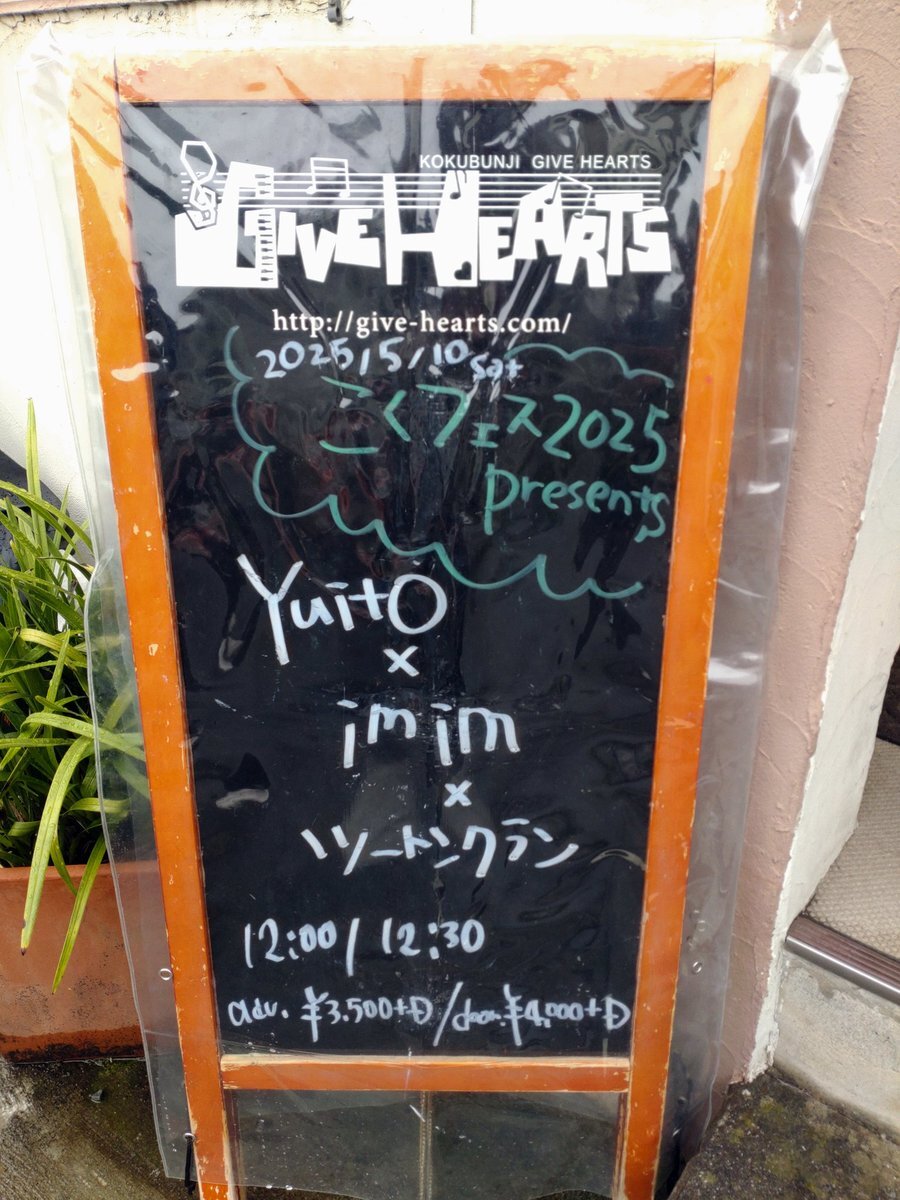 KOKUBUNJI GIVE HEARTS
GIVE HEARTS
http://give-hearts.com/
2025/5/10 Sat
こくフェス2025
presents
YuitO
×
imim
×
ハソートンクラン
12:00 / 12:30
adv. ¥3.500+D / door. ¥4,000+D